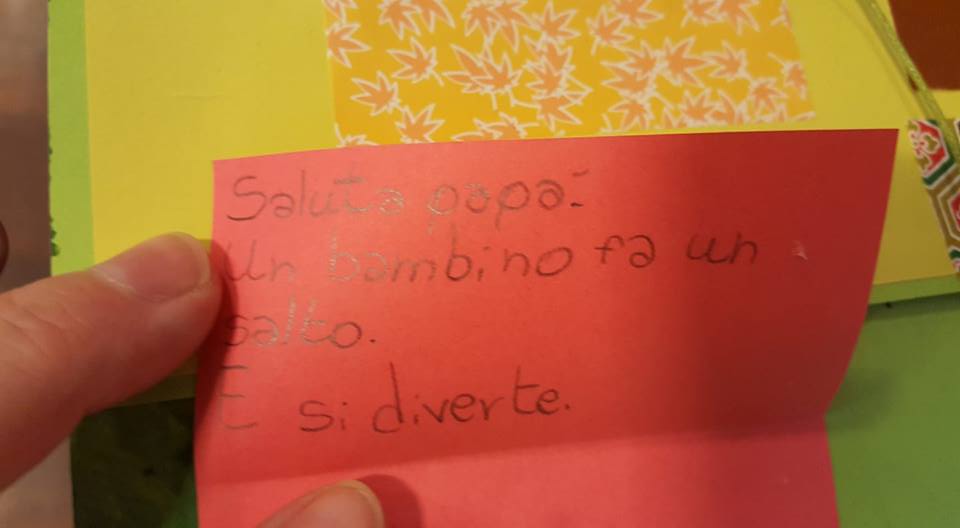 Saluta papà:
Un bambino fa un
salto.
E si diverte.